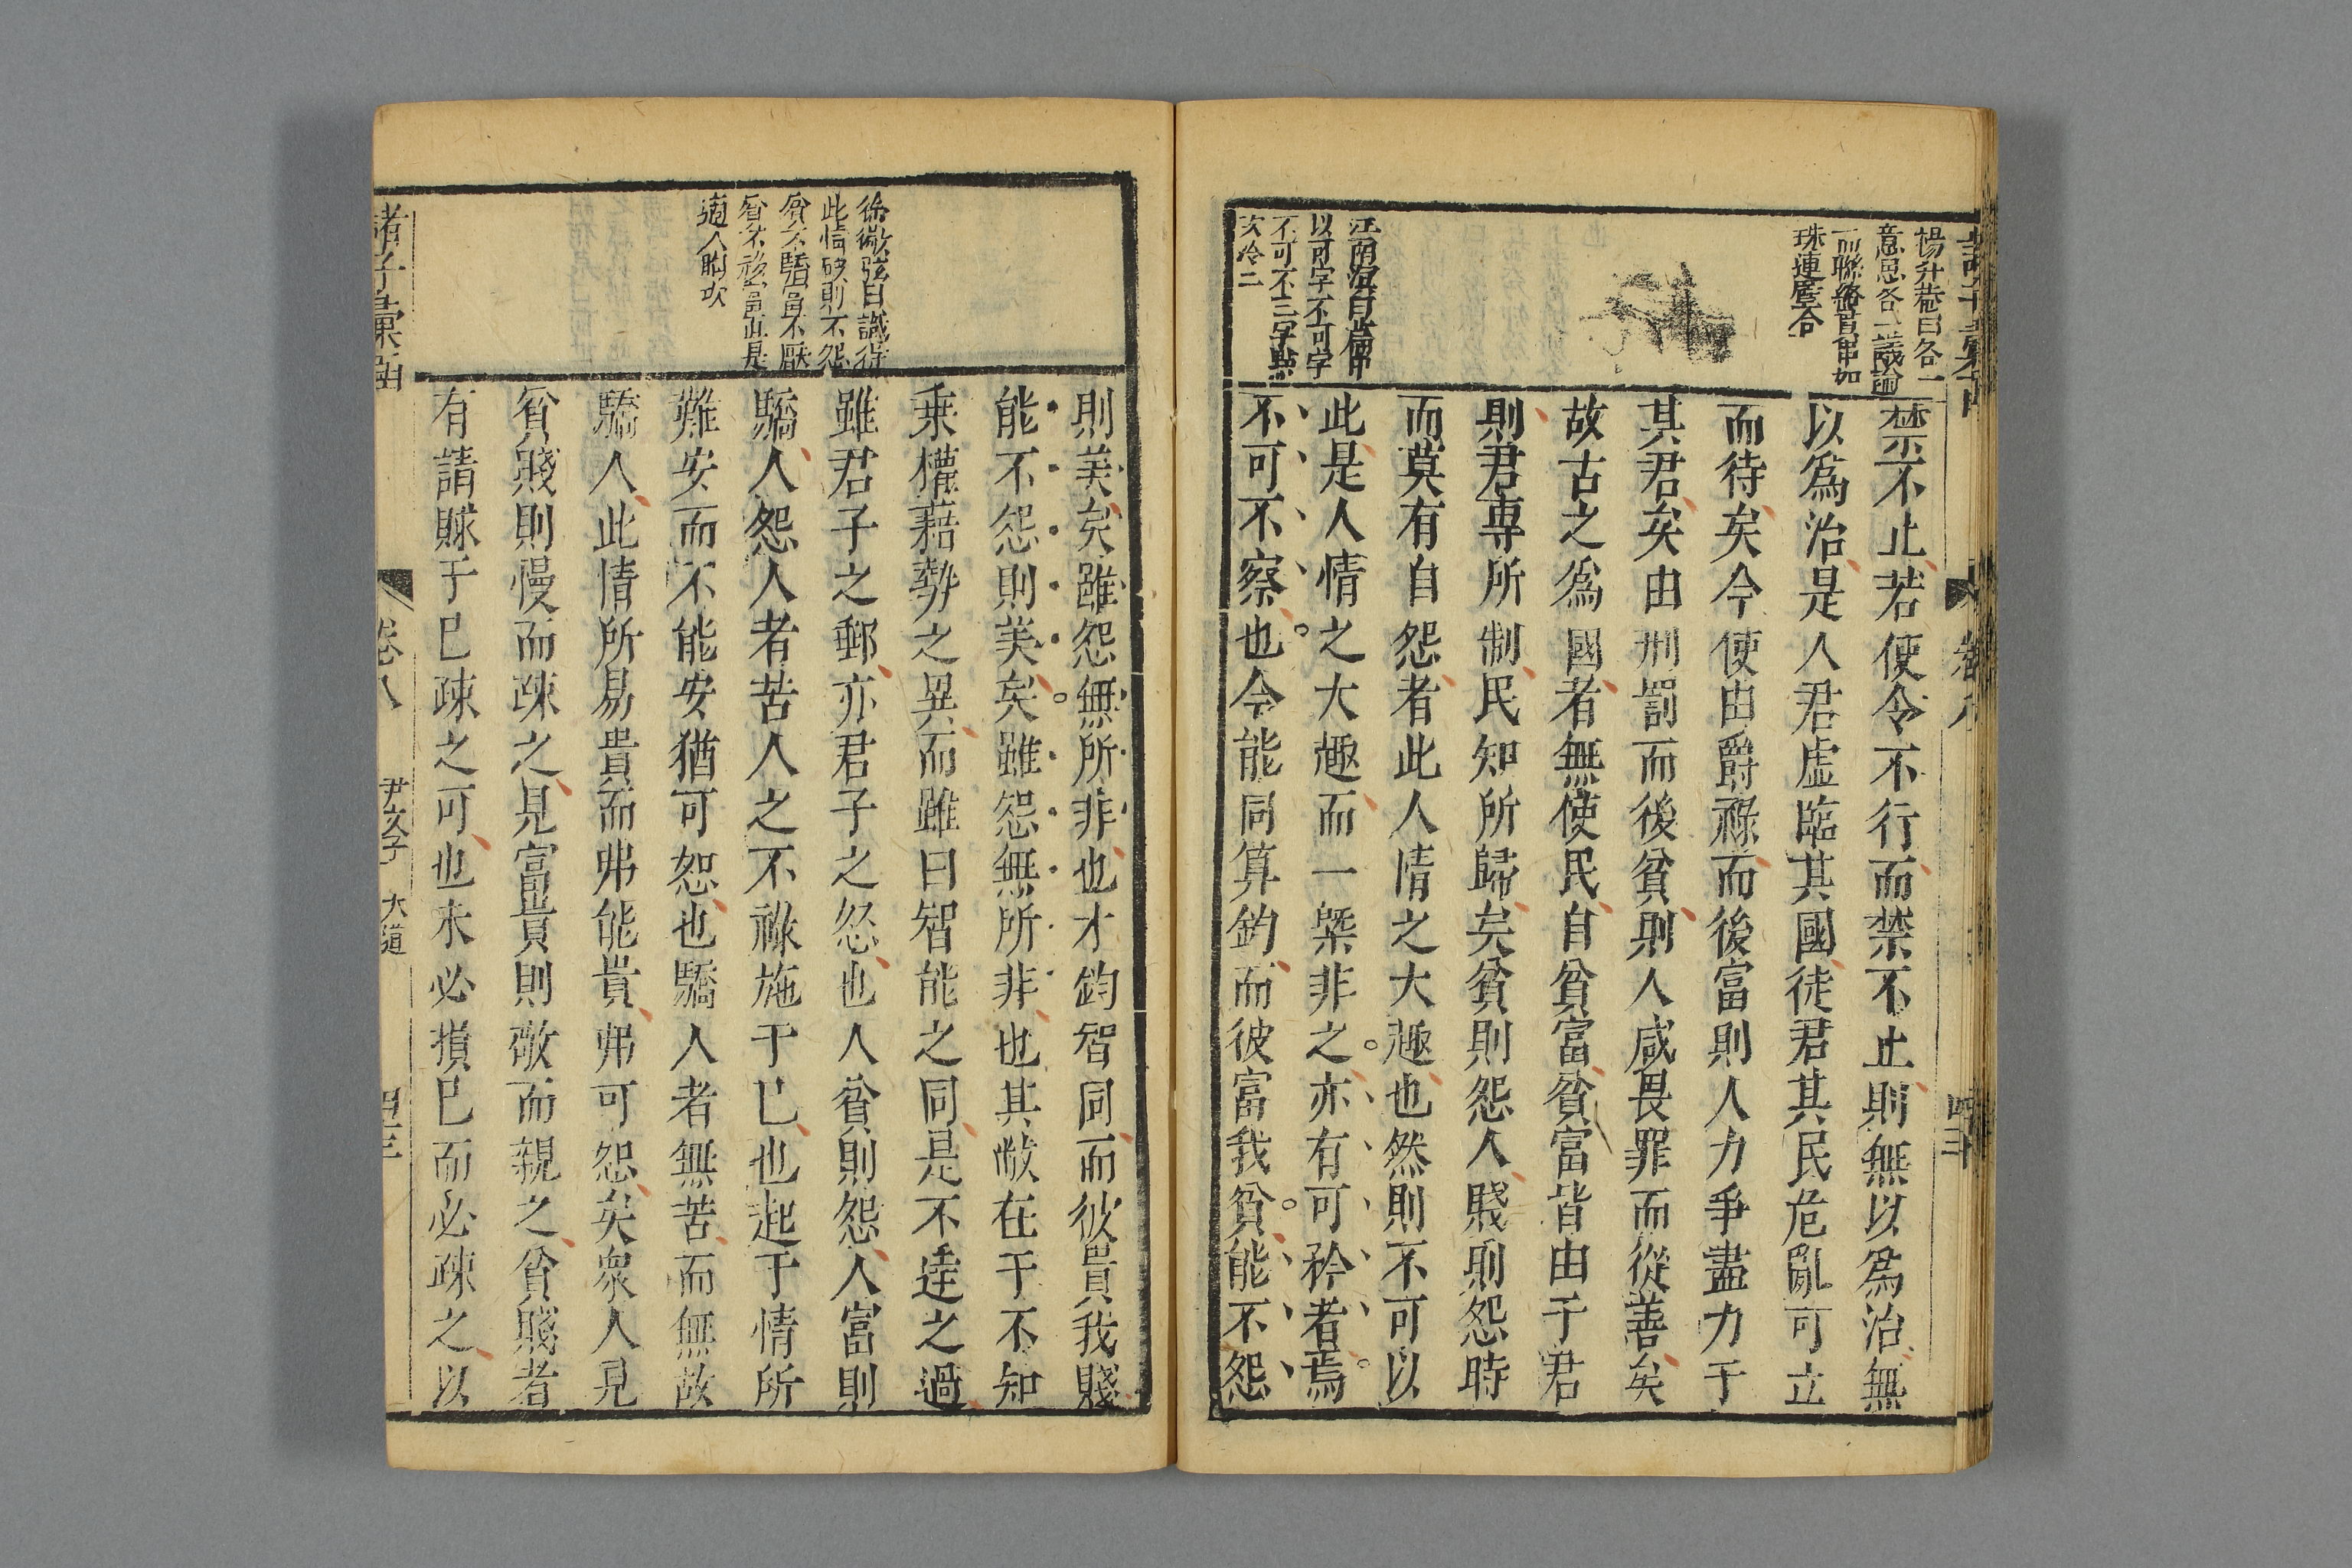 楊升菴曰各一
意思各一議論
一而聯絡貫串如
珠連璧合
禁不止若使令不行而禁不止則無以爲治無
以爲治是人君虛臨其國徒君其民危亂可立
而待矣今使由爵祿而後富則人力爭盡力于
其君矣由刑罰而後貧則人咸畏罪而從善矣
故古之爲國者無使民自貧富貧富皆由于君
則君專所制民知所歸矣貧則怨人賤則怨時
而莫有自怨者此人情之大趣也然則不可以
此是人情之大趣而一槩非之亦有可矜者焉
不可不察也今能同算鈞而彼富我貧能不怨
以可字不可字
不可不三字點
次冷二
則美矣雖怨無所非也才鈞智同而彼貴我賤
能不怨則美矣雖怨無所非也其敝在于不知
乘權藉勢之異而雖曰智能之同是不逹之過
雖君子之郵亦君子之怒也人貧則怨人富則
驕人怨人者苦人之不祿施于已也起于情所
難安而不能安猶可恕也驕人者無苦而無故
驕人此情所易貴而弗能貴弗可怨矣衆人見
貧賤則慢而疎之見富貴則敬而親之貧賤者
有請賕于已疎之可也未必損已而必疎之以
徐微弦曰識得
此情破則不怨
貧不驕富不厭
貧不𧛞富亦是
適人胸次
諸子彙函
卷八
尹文子
大道
四三